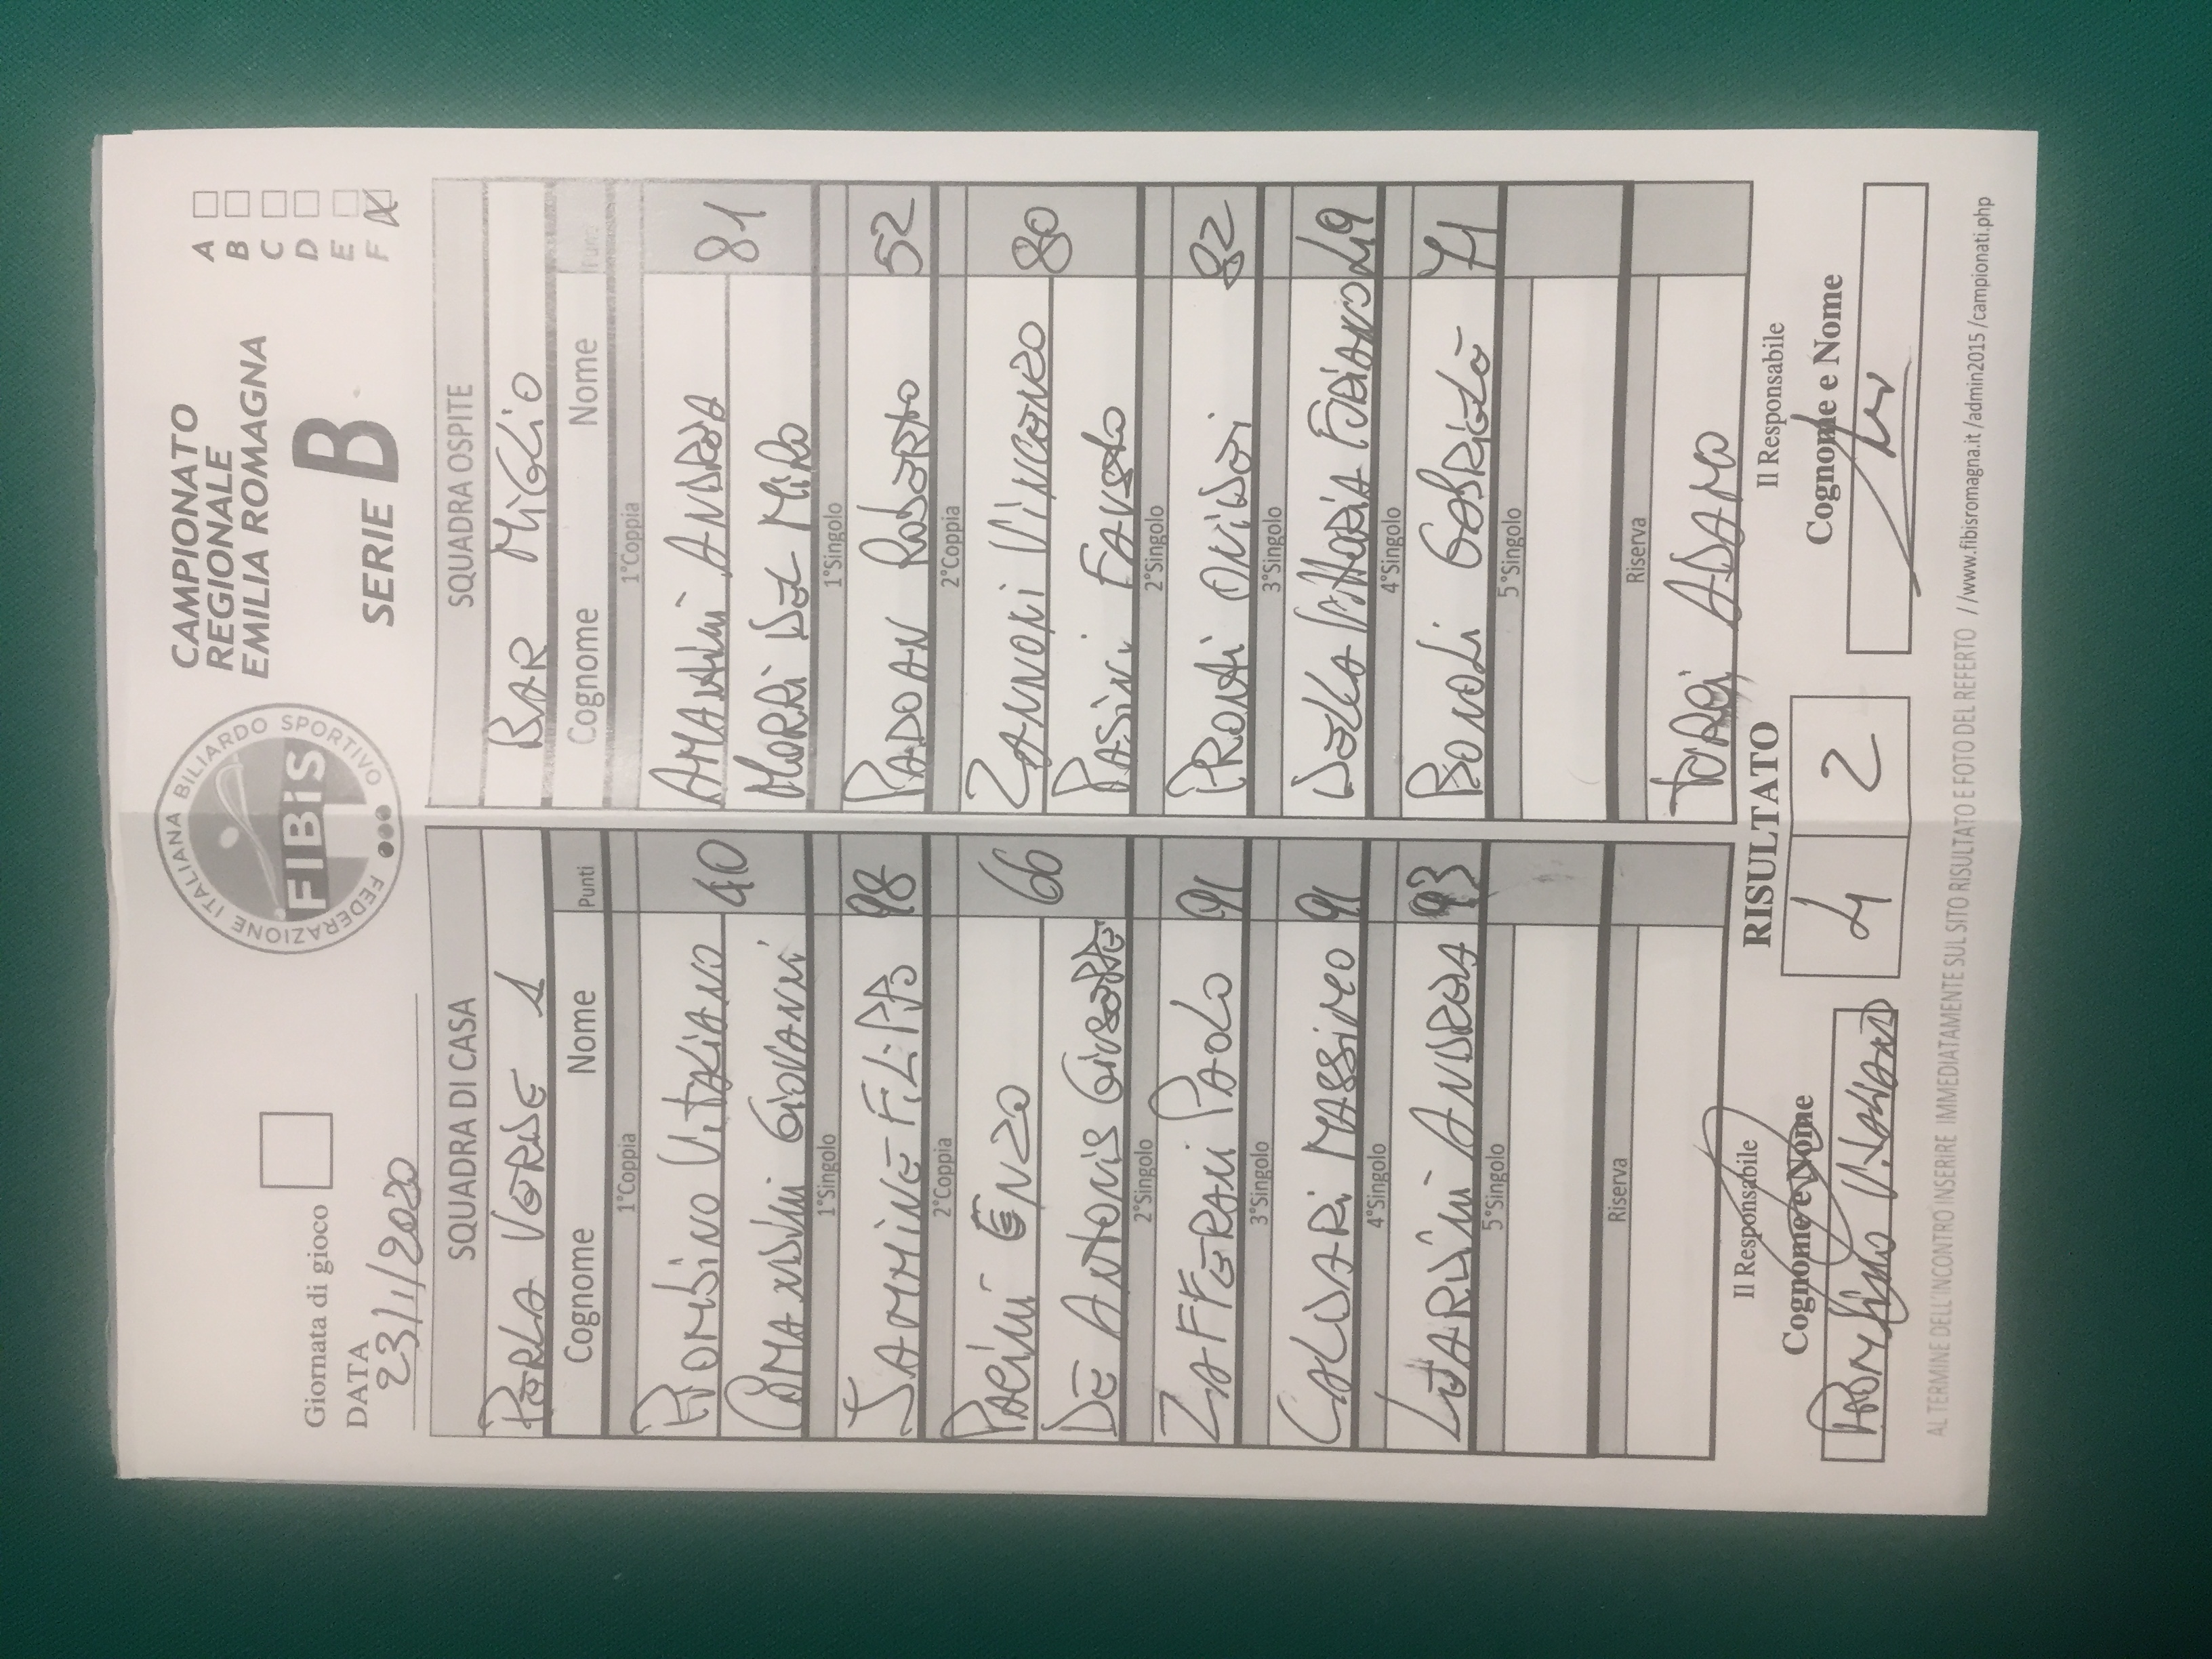 FEDERAZIONE ITALIANA BILIARDO SPORTIVO
FIBiS
CAMPIONATO
REGIONALE
EMILIA ROMAGNA
SERIE B
A
B
C
D
E
F X
Giornata di gioco
DATA
23/1/2020
SQUADRA DI CASA
PERLA VERDE 1
Cognome Nome Punti
1°Coppia
PIOMBINO VITALIANO 40
COMANDINI GIOVANNI
1°Singolo
IAMMINE FILIPPO 98
2°Coppia
PAGINI ENZO 66
DE ANTONIS GIUSEPPE
2°Singolo
ZAFFERANI PAOLO 91
3°Singolo
CALDARI MASSIMO 91
4°Singolo
ANDREA 93
5°Singolo
Riserva
SQUADRA OSPITE
BAR MIGLIO
Cognome Nome Punti
1°Coppia
AMANTINI ANDREA 81
MORRI DEL MIRO
1°Singolo
PADOAN ROBERTO 52
2°Coppia
ZANNONI VINCENZO 80
PASINI FAUSTO
2°Singolo
PRONTI 82
3°Singolo
DELLA VITTORIA FABIANO 49
4°Singolo
GABRIELE 71
5°Singolo
Riserva
ADAMO
RISULTATO
4 2
Il Responsabile
Cognome e Nome
Il Responsabile
Cognome e Nome
AL TERMINE DELL'INCONTRO INSERIRE IMMEDIATAMENTE SUL SITO RISULTATO E FOTO DEL REFERTO //www.fibisromagna.it /admin2015 /campionati.php